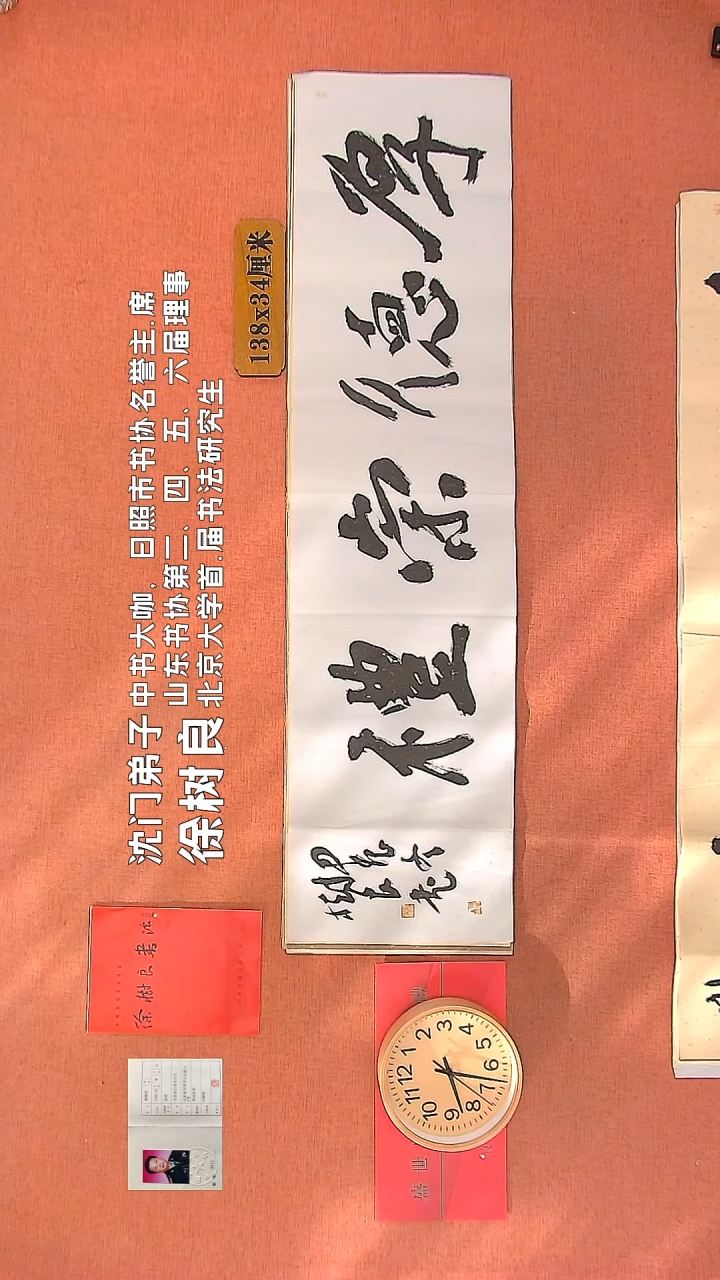 厚德崇禮
138x34厘米
沈门弟子
徐树良
中书大咖，日照市书协名誉主.席
山东书协第二、四、五、六届理事
北京大学首.届书法研究生
徐樹良書法
盛世
12
1
2
3
4
5
6
7
8
9
10
11